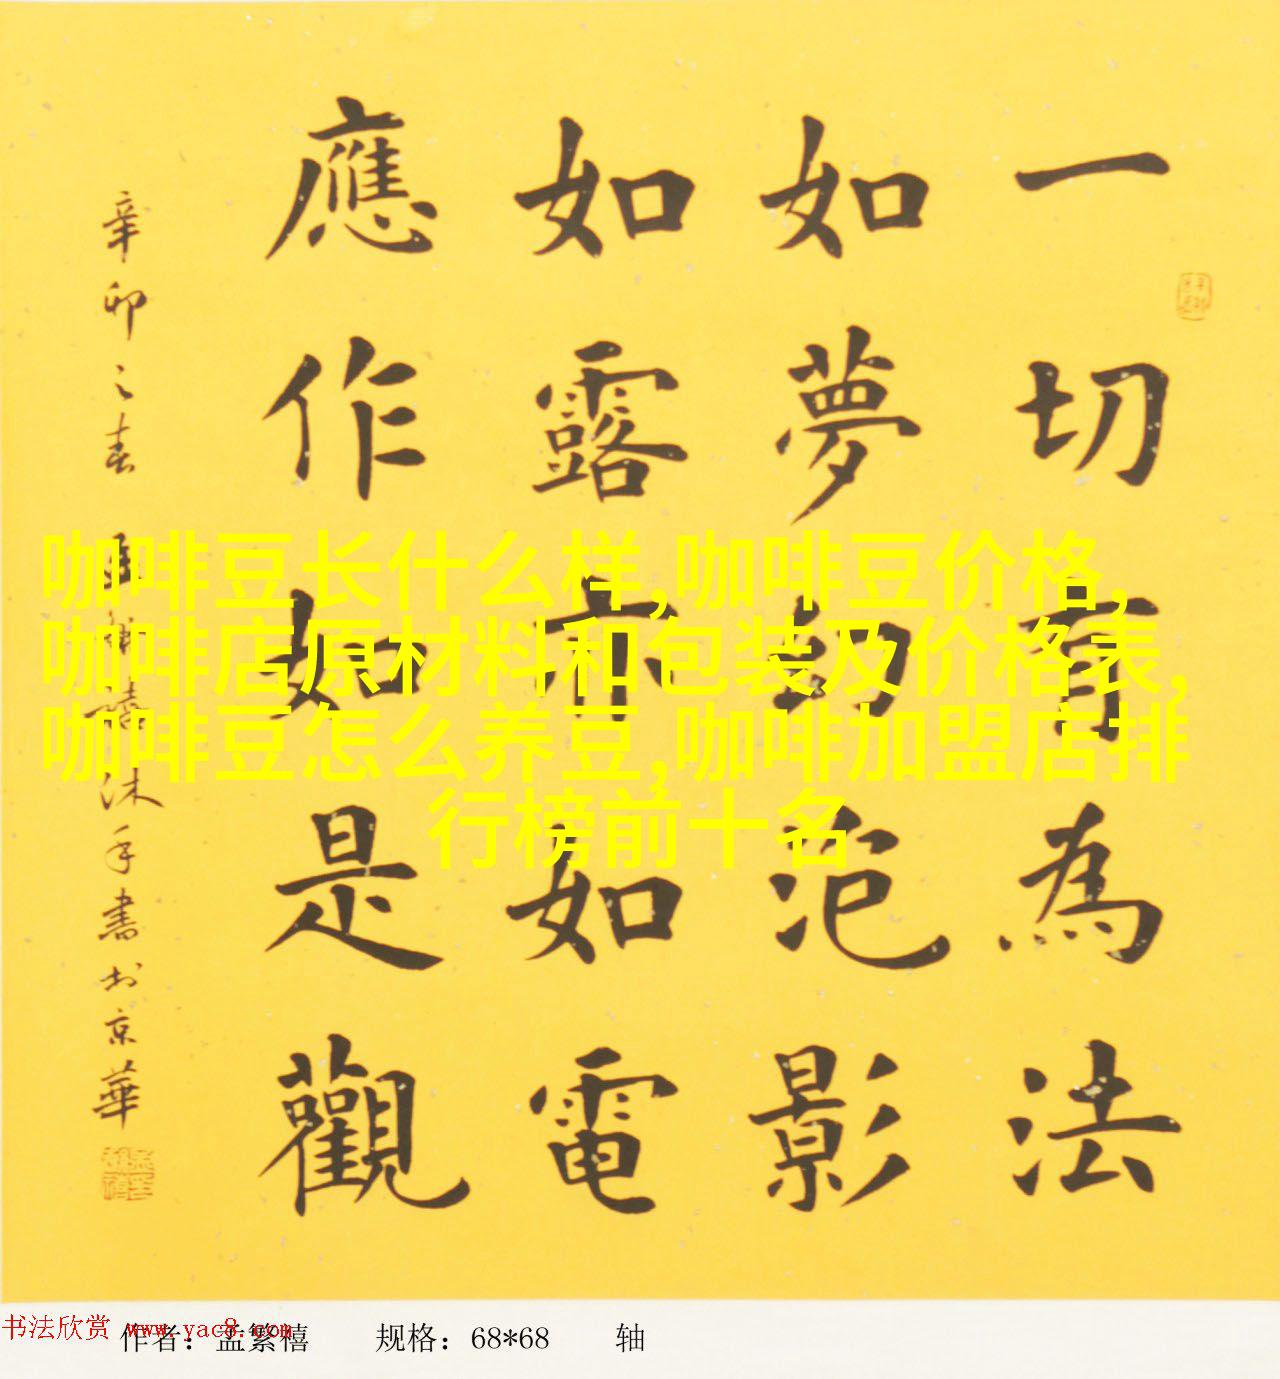 一切有為法
如夢幻泡影
如露亦如電
應作如是觀
辛卯之春孟繁禧沐手書於京華
咖啡豆长什么样,咖啡豆价格,
咖啡店原材料和包装及价格表,
咖啡豆怎么养豆,咖啡加盟店排
行榜前十名
书法欣赏 www.yac8.com
作者：孟繁禧 规格：68*68 轴